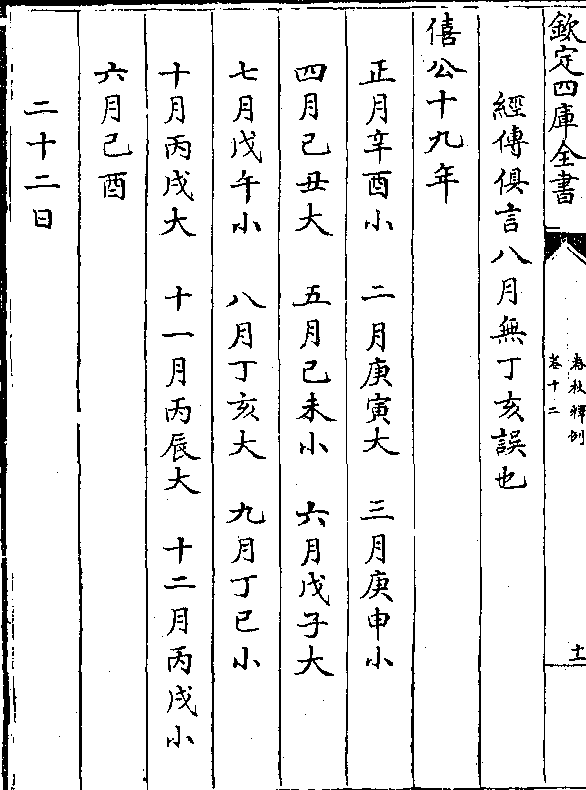 欽定四庫全書
春秋釋例
卷十二
十一
經傳俱言八月無丁亥誤也
僖公十九年
正月辛酉小　二月庚寅大　三月庚申小
四月己丑大　五月己未小　六月戊子大
七月戊午小　八月丁亥大　九月丁巳小
十月丙戌大　十一月丙辰大　十二月丙戌小
六月己酉
二十二日